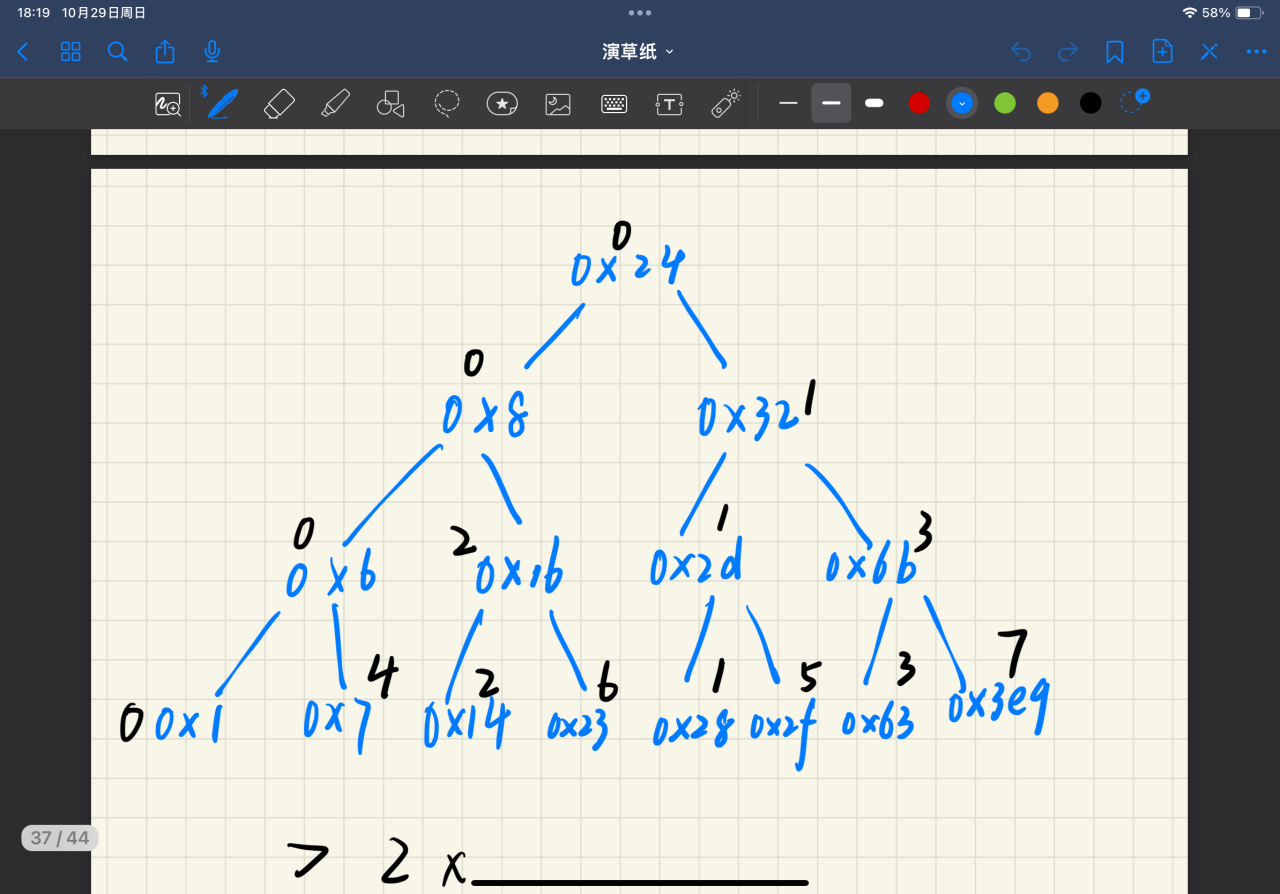 18:19 10月29日周日
58%
演草纸
T
0
0x24
0
0x8
0x32 1
0
0x6
2
0x16
1
0x2d
0x6b 3
0 0x1
4
0x7
2
0x14
6
0x23
1
0x28
5
0x2f
3
0x63
7
0x3e9
37 / 44
> 2 x